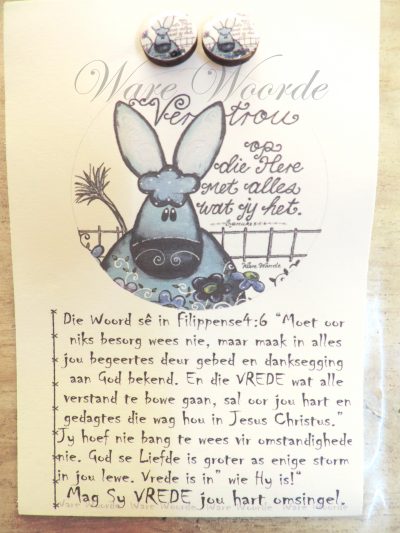 Ware Woorde
Vertrou
op
die Here
met alles
wat jy het.
Ware Woorde
Die Woord sê in Filippense4:6 "Moet oor
niks besorg wees nie, maar maak in alles
jou begeertes deur gebed en danksegging
aan God bekend. En die VREDE wat alle
verstand te bowe gaan, sal oor jou hart en
gedagtes die wag hou in Jesus Christus."
Jy hoef nie bang te wees vir omstandighede
nie. God se Liefde is groter as enige storm
in jou lewe. Vrede is in" wie Hy is!"
Mag Sy VREDE jou hart omsingel.
Ware Woorde Ware Woorde Ware Woorde Ware Woorde